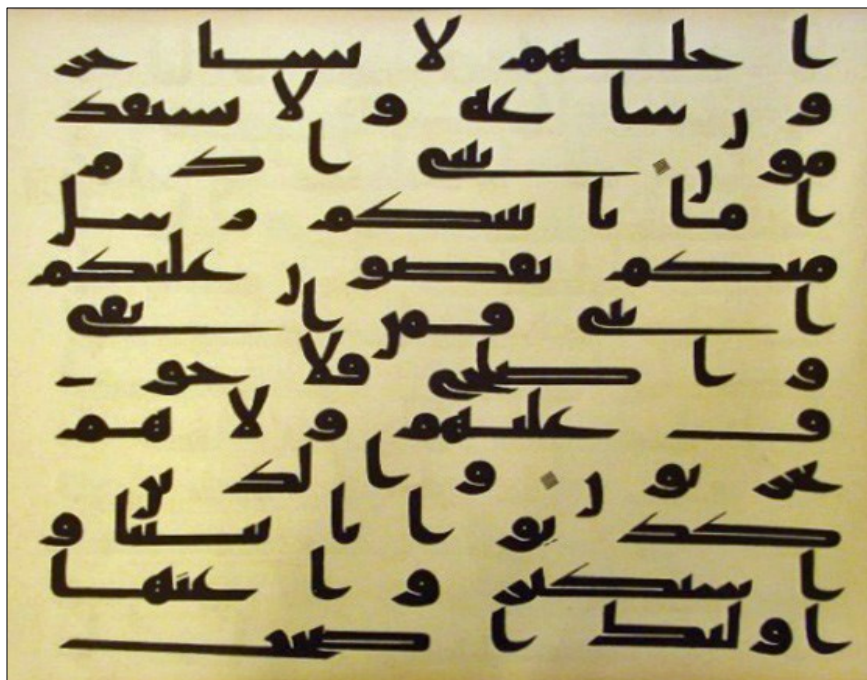 اجلهم لا يستاخر
ون ساعه ولا يستقد
مون يبنى ادم
اما ياتينكم رسل
منكم يقصون عليكم
ايتى فمن اتقى
واصلح فلا خو
ف عليهم ولا هم
يحزنون والذين
كذبوا بايتنا و
استكبروا عنها
اولئك اصحب